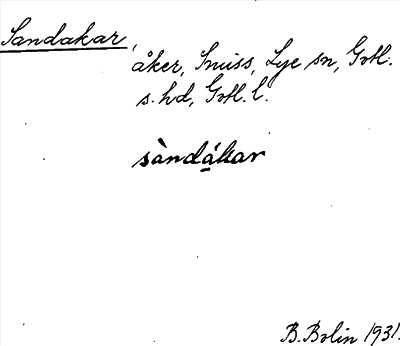 Sandakar,
åker, Snuss, Lye sn, Gotl.
s. hd, Gotl. l.
sàndá̱kar
B. Bolin 1931.